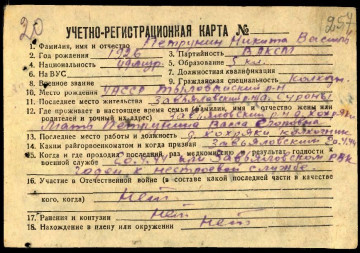 20
257
УЧЕТНО-РЕГИСТРАЦИОННАЯ КАРТА №
1. Фамилия, имя и отчество Петрунин Никита
2. Год рождения 1926 3. Партийность ВЛКСМ
4. Национальность удмурт 5. Образование 3 кл.
6. На ВУС 7. Должностная квалификация
8. Военное звание 9. Гражданская специальность колхоз.
10. Место рождения УАССР р-н
11. Последнее место жительства Завьяловский р-н
12. Где проживает в настоящее время семья (фамилия, имя и отчество жены или родителей и точный их адрес) Завьяловский р-н
Мать Петрунина
13. Последнее место работы и должность колхозник
14. Каким райгорвоенкоматом и когда призван Завьяловским
15. Когда и где проходил последний раз медкомиссию и результат годности к военной службе Завьяловском РВК
годен к нестроевой службе
16. Участие в Отечественной войне (в составе какой последней части в качестве кого, когда) Нет
17. Ранения и контузии Нет
18. Нахождение в плену или окружении Нет